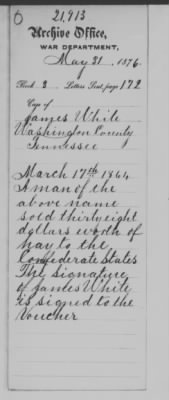 21,913
Archive Office,
WAR DEPARTMENT,
May 31, 1876.
Book 3 Letters Sent, page 172
Case of
James White
Washington County
Tennessee
March 17th 1864
A man of the
above name
sold thirty eight
dollars worth of
hay to the
Confederate States
The signature
of James White
is signed to the
Voucher